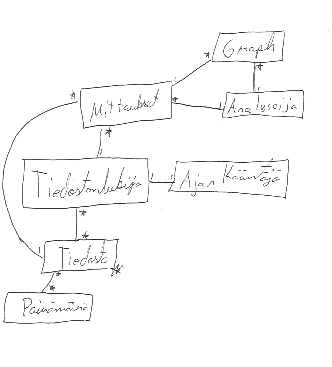 Graph
Mittaukset
Analysoija
Tiedostonlukija
Ajan Kääntäjä
Tiedosto
Päivämäärä